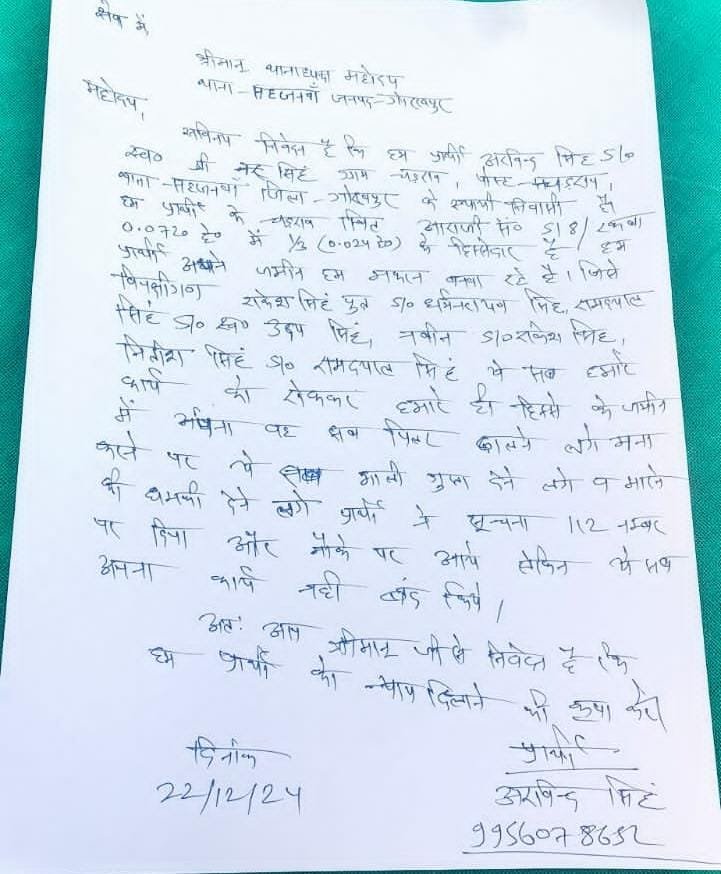 सेवा में
श्रीमान् थानाध्यक्ष महोदय
थाना - सहजनवाँ जनपद - गोरखपुर
महोदय,
सविनय निवेदन है कि हम प्रार्थी अरविन्द सिंह S/o
स्व० श्री सिंह ग्राम - पोस्ट -
थाना - सहजनवाँ जिला - गोरखपुर के स्थायी निवासी है।
हम प्रार्थी के स्थित आराजी सं० 518/ रकबा
0.0720 हे० में 1/3 (0.024 हे०) के हिस्सेदार है / हम
प्रार्थी अपने जमीन हम मकान बनवा रहे है। जिसे
विपक्षीगण राकेश सिंह पुत्र S/o सिंह, रामदयाल
सिंह S/o स्व० उदय सिंह, नवीन S/o राकेश सिंह,
नितीश सिंह S/o रामदयाल सिंह ये सब हमारे
कार्य को रोककर हमारे ही हिस्से के जमीन
में अपना वह सब पिलर डालने लगे मना
करने पर ये सब गाली गुप्ता देने लगे व मारने
की धमकी देने लगे प्रार्थी ने सूचना 112 नम्बर
पर दिया और मौके पर आये लेकिन ये सब
अपना कार्य नही बंद किये /
अतः आप श्रीमान् जी से निवेदन है कि
हम प्रार्थी को न्याय दिलाने की कृपा करें।
दिनांक
22/12/24
प्रार्थी
अरविन्द सिंह
9956078652